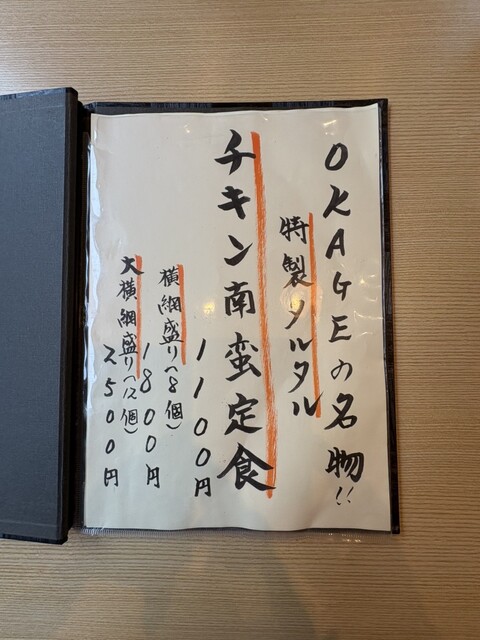 OKAGEの名物!!
特製タルタル
チキン南蛮定食
1100円
横綱盛り(8個)
1800円
大横綱盛り(12個)
2500円